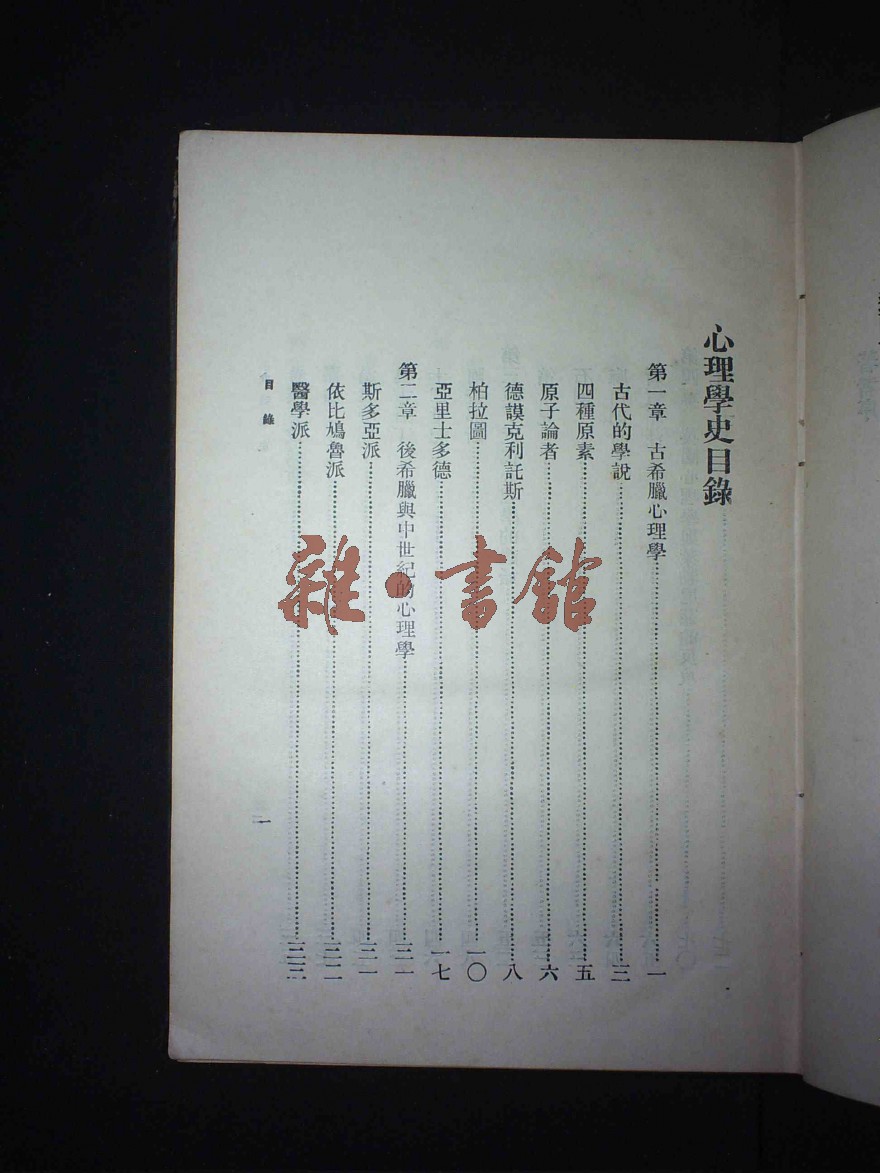 心理學史目錄
第一章　古希臘心理學……一
古代的學說……三
四種原素……五
原子論者……六
德謨克利託斯……八
柏拉圖……一〇
亞里士多德……一七
第二章　後希臘與中世紀的心理學……三一
斯多亞派……三一
依比鳩魯派……三二
醫學派……三三
目錄
一
雜·書館